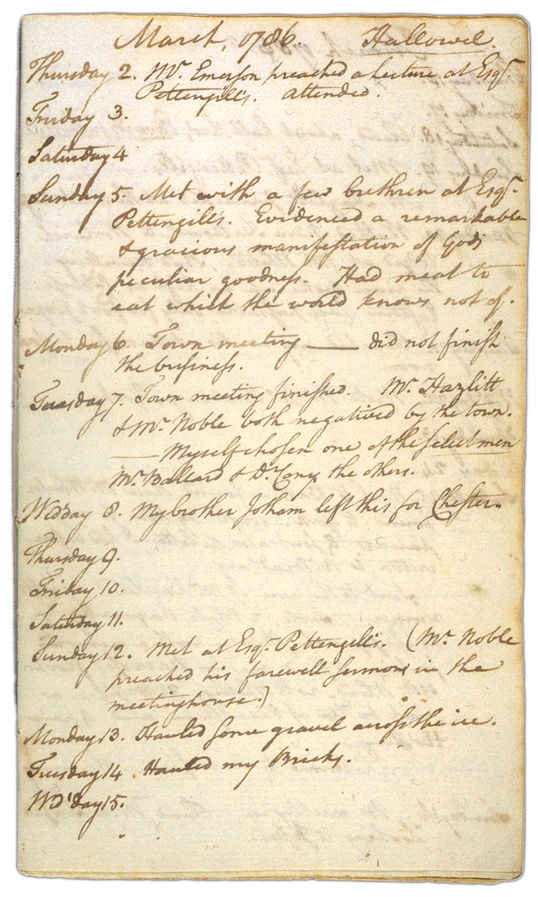 March, 1786. Hallowel.
Thursday 2. Mr. Emerson preached a lecture at Esqr.
Pettengill's. attended.
Friday 3.
Saturday 4
Sunday 5. Met with a few brethren at Esqr.
Pettengill's. Evidenced a remarkable
& gracious manifestation of Gods
peculiar goodness. Had meat to
eat which the world knows not of.
Monday 6. Town meeting —— did not finish
the business.
Tuesday 7. Town meeting finished. Mr. Hazlitt
& Mr. Noble both negatived by the town.
—— Myself chosen one of the selectmen
Mr. Ballard & Dr. Cony the others.
Wedday 8. My brother Jotham left this for Chester.
Thursday 9.
Friday 10.
Saturday 11.
Sunday 12. Met at Esqr. Pettengill's. (Mr. Noble
preached his farewell sermons in the
meetinghouse.)
Monday 13. Hauled some gravel across the ice.
Tuesday 14. Hauled my Bricks.
Wd'day 15.